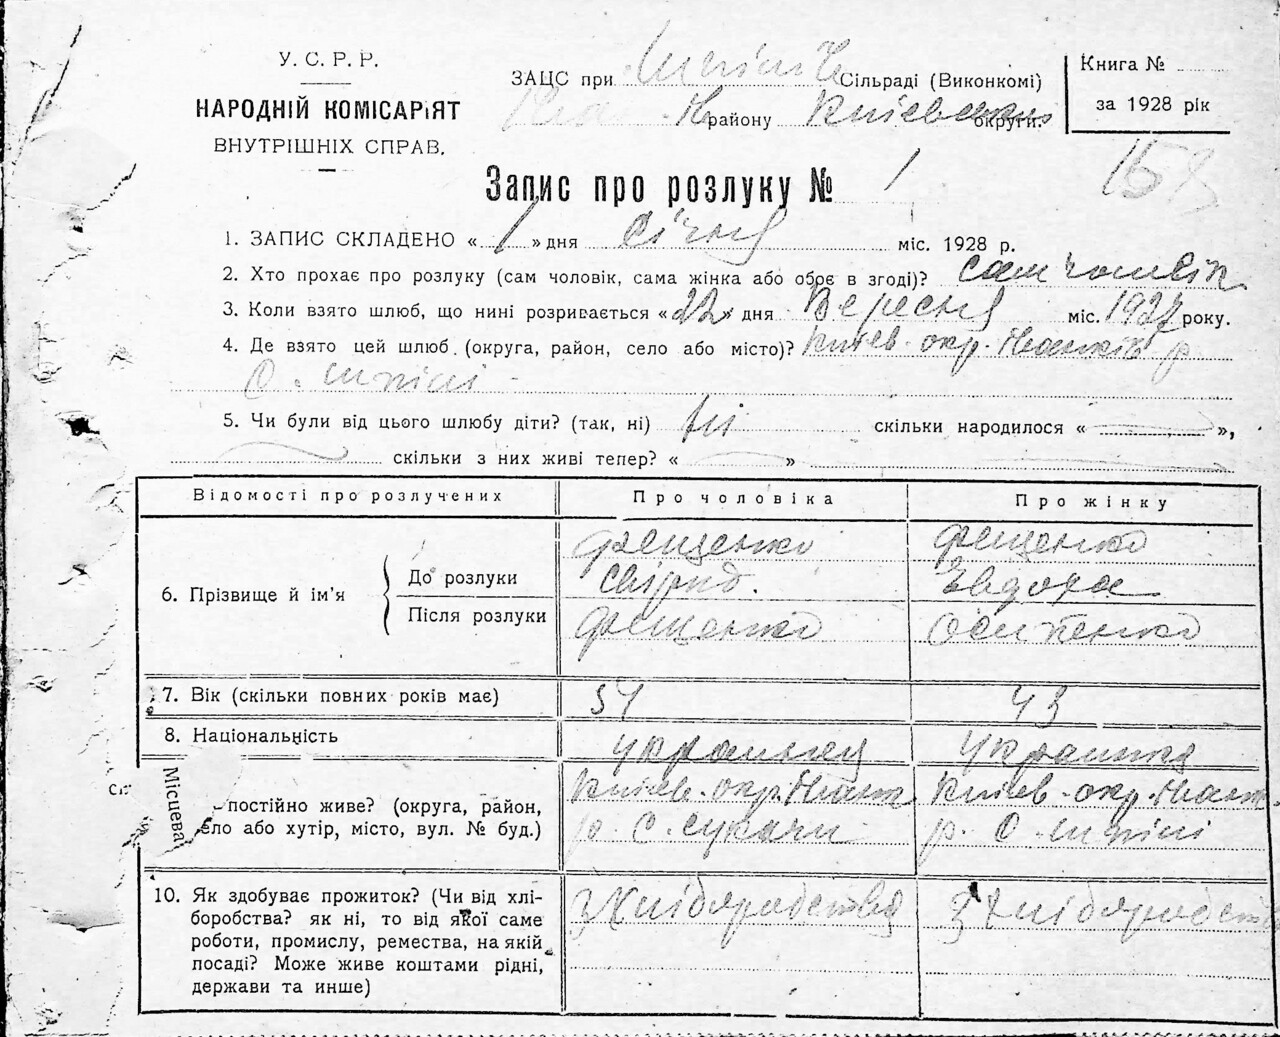 У. С. Р. Р.
НАРОДНІЙ КОМІСАРІЯТ
ВНУТРІШНІХ СПРАВ.
ЗАЦС при Шпілів Сільраді (Виконкомі)
району Київської округи.
Книга №
за 1928 рік
Запис про розлуку № 1
1. ЗАПИС СКЛАДЕНО « 1 » дня Січня міс. 1928 р.
2. Хто прохає про розлуку (сам чоловік, сама жінка або обоє в згоді)? сам чоловік
3. Коли взято шлюб, що нині розривається «22» дня Вересня міс. 1927 року.
4. Де взято цей шлюб. (округа, район, село або місто)? Київ. окр. Іванків р.
с. Шпілі
5. Чи були від цього шлюбу діти? (так, ні) Ні скільки народилося « »,
скільки з них живі тепер? « »
Відомості про розлучених Про чоловіка Про жінку
6. Прізвище й ім'я
До розлуки
Фещенко Свірид. Фещенко Евдоха
Після розлуки
Фещенко Осипенко
7. Вік (скільки повних років має) 54 43
8. Національність українец українка
Місцева
постійно живе? (округа, район, Київ. окр. Іванк. Київ. окр. Іванк.
село або хутір, місто, вул. № буд.) р. с. Сукачи р. с. Шпілі
10. Як здобуває прожиток? (Чи від хлі- з Хліборобства з Хліборобства
боробства? як ні, то від якої саме
роботи, промислу, ремества, на якій
посаді? Може живе коштами рідні,
держави та инше)